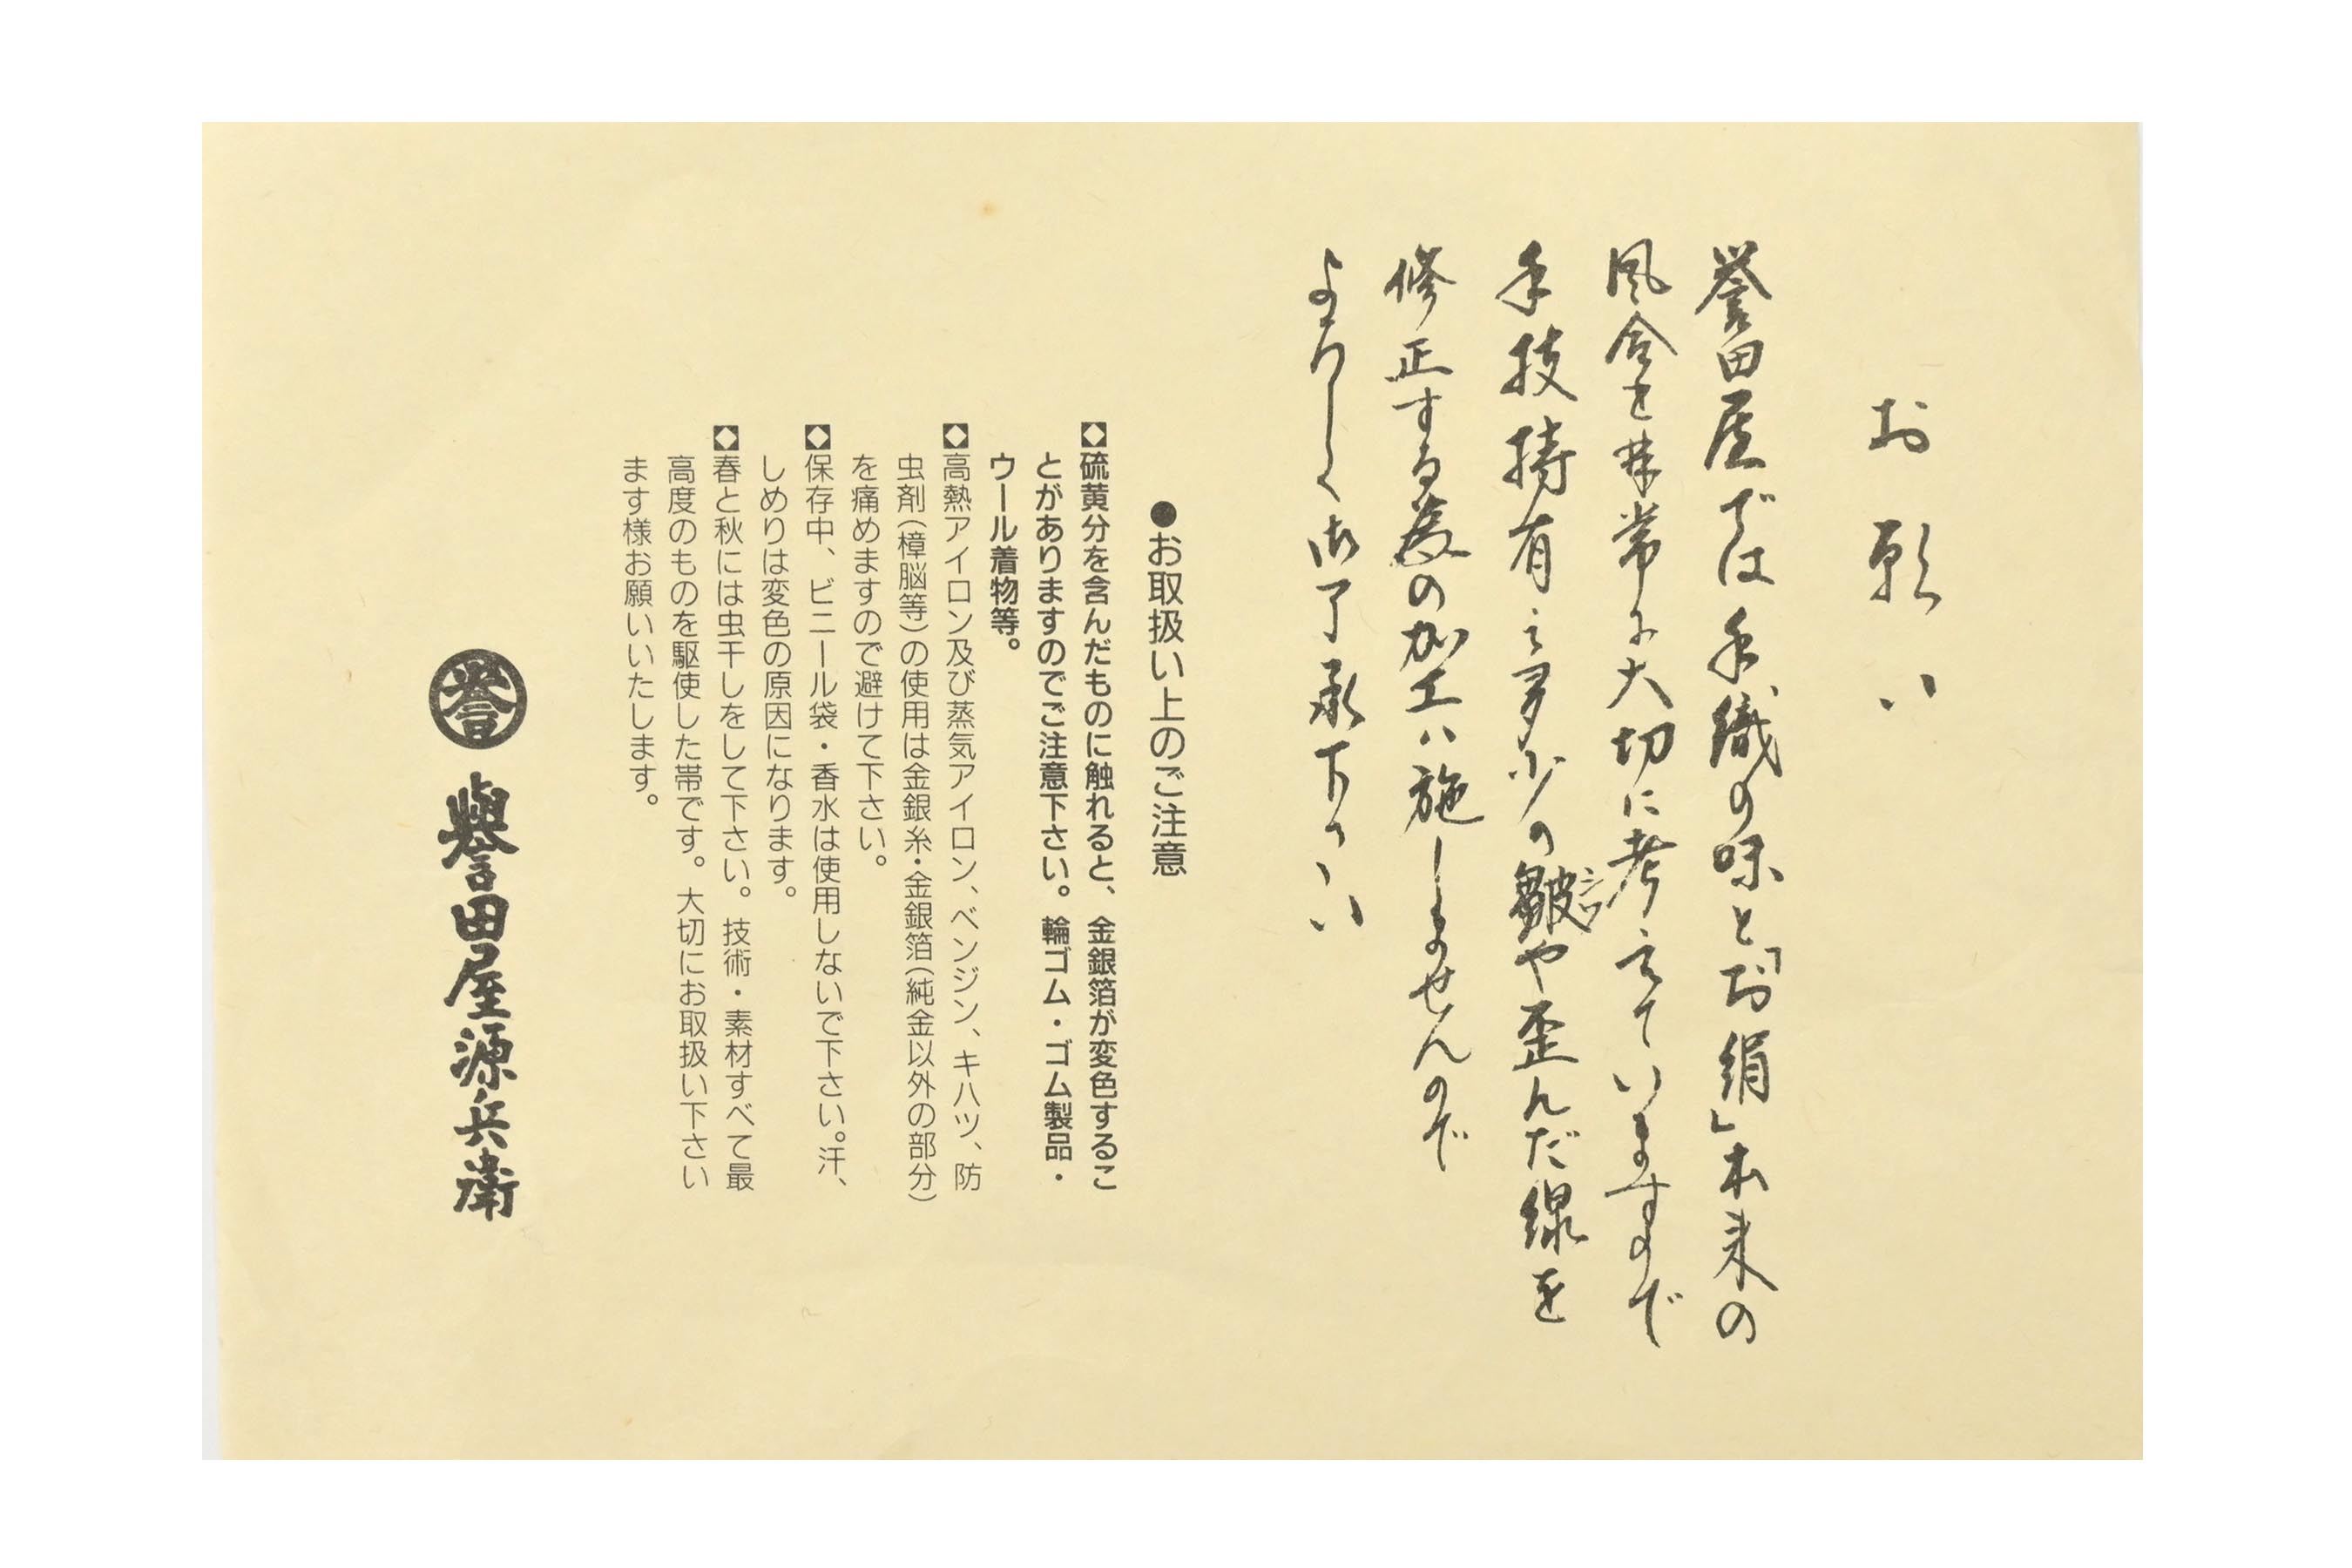 お願い
誉田屋では手織の味と「お絹」本来の
風合を非常に大切に考えていますので
手技持有之多少の皺や歪んだ線を
シワ
修正する為の加工は施しませんので
よろしく御了承下さい
●お取扱い上のご注意
硫黄分を含んだものに触れると、金銀箔が変色するこ
とがありますのでご注意下さい。輪ゴム・ゴム製品・
ウール着物等。
高熱アイロン及び蒸気アイロン、ベンジン、キハツ、防
虫剤(樟脳等)の使用は金銀糸・金銀箔(純金以外の部分)
を痛めますので避けて下さい。
保存中、ビニール袋・香水は使用しないで下さい。汗、
しめりは変色の原因になります。
春と秋には虫干しをして下さい。技術・素材すべて最
高度のものを駆使した帯です。大切にお取扱い下さい
ます様お願いいたします。
誉
譽田屋源兵衛